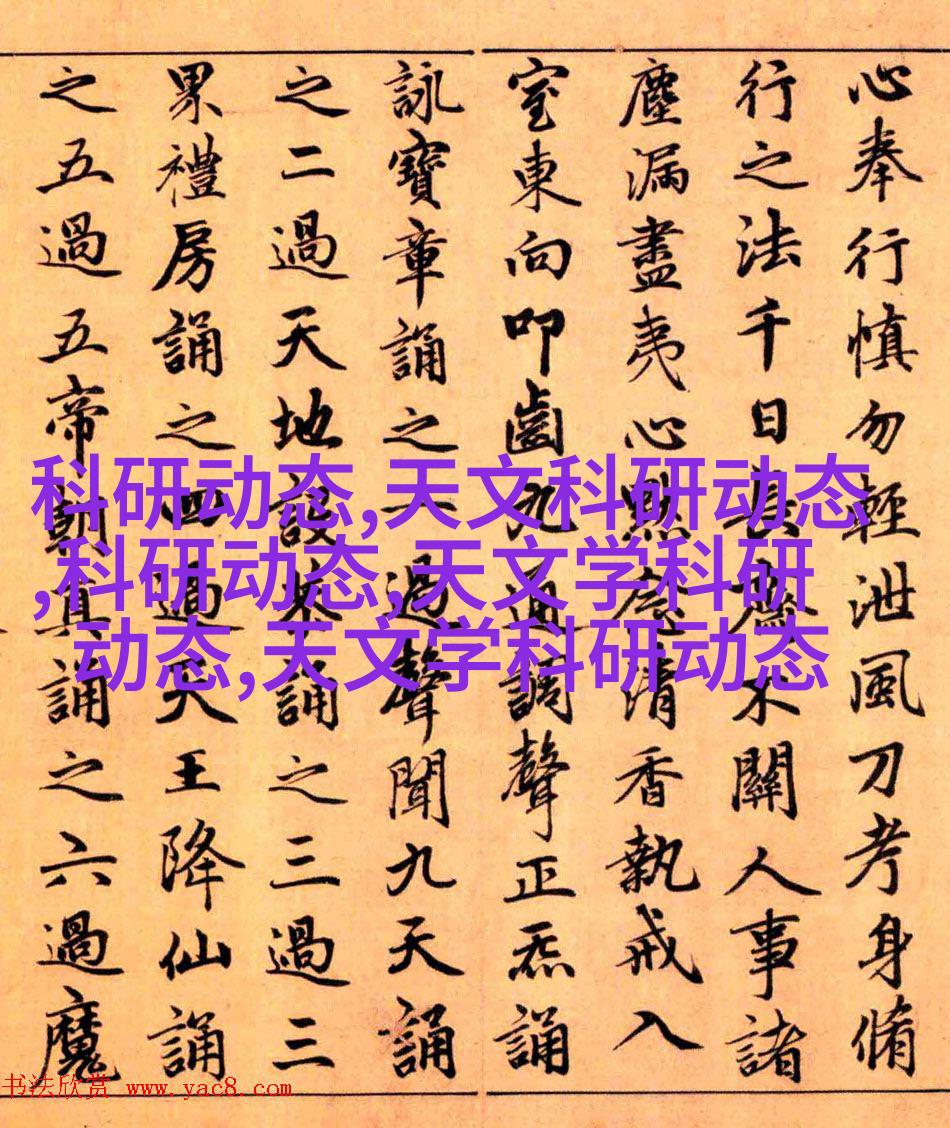 心奉行慎勿輕泄風刀考身脩
行之法千日長齋不關人事諸
塵漏盡夷心默念清香執戒入
室東向叩齒九通調聲正炁誦
詠寶章誦之一過聲聞九天誦
之二過天地設恭誦之三過三
累禮房誦之四過天王降仙誦
之五過五帝朝真誦之六過魔
科研动态,天文科研动态
,科研动态,天文学科研
动态,天文学科研动态
书法欣赏 www.yac8.com